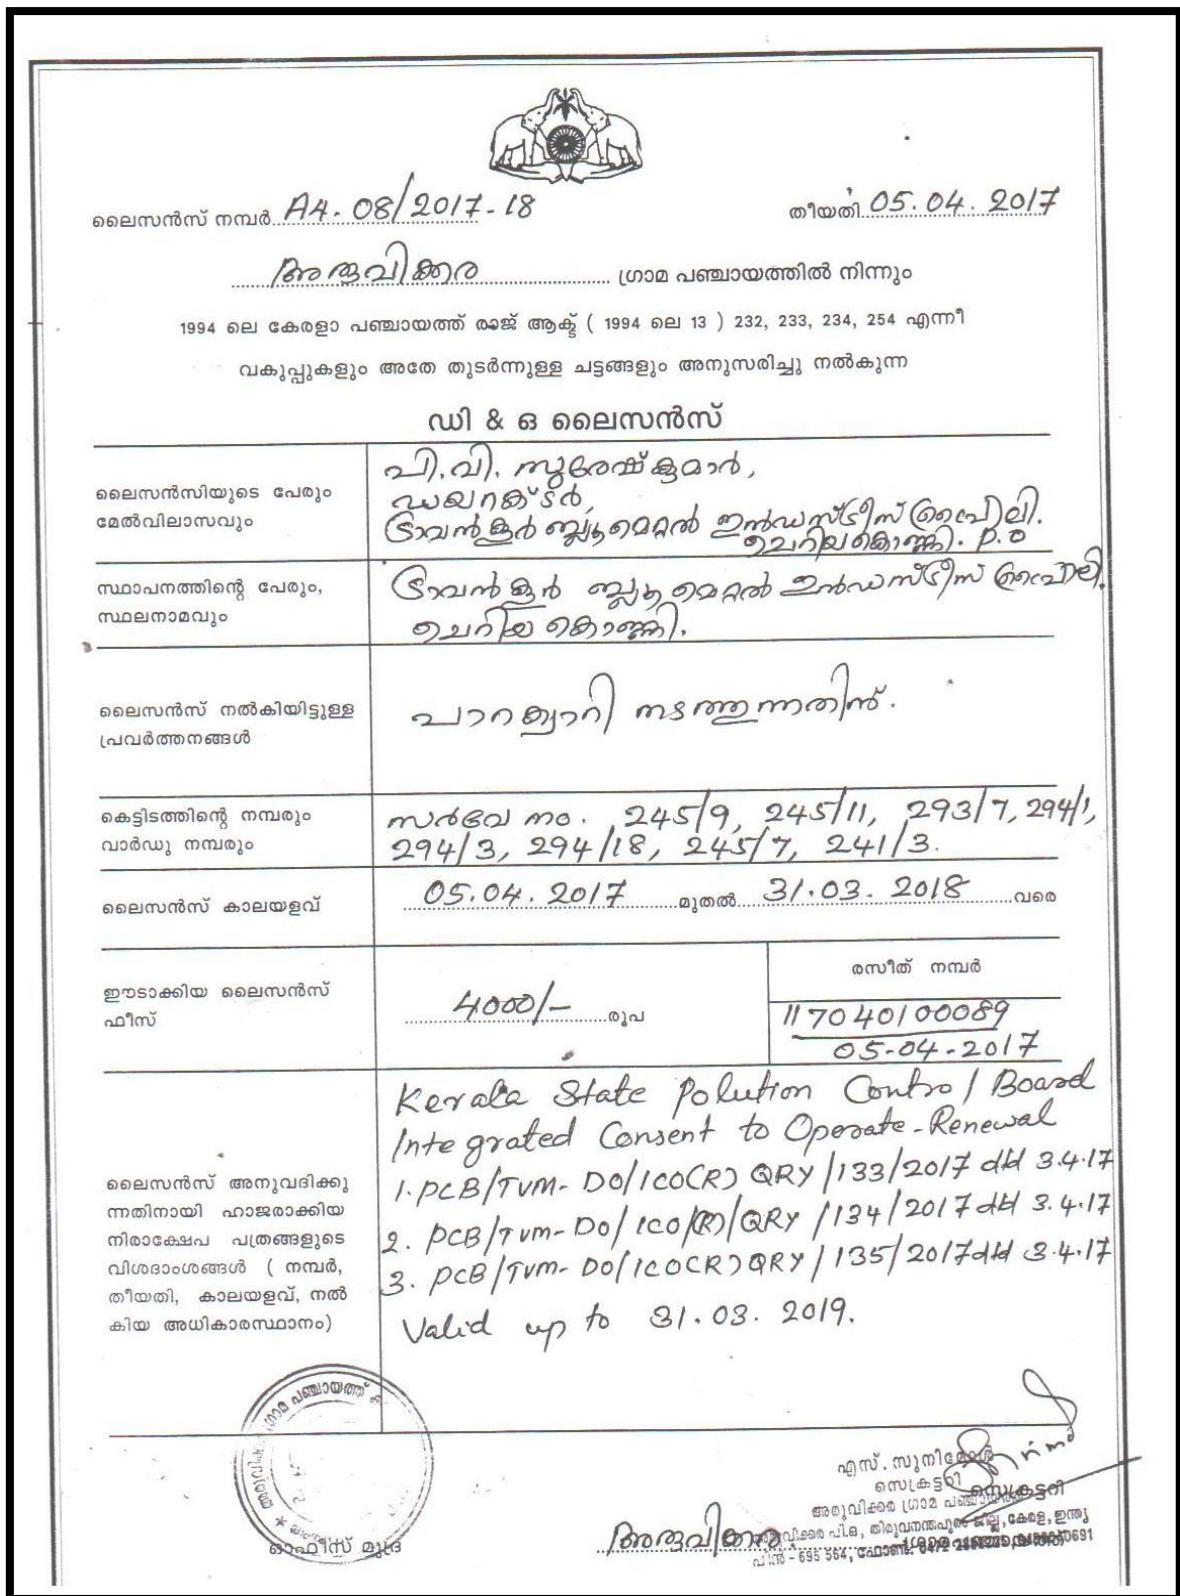 ലൈസൻസ് നമ്പർ A4-08/2017-18
തീയതി 05.04.2017
അരുവിക്കര ഗ്രാമ പഞ്ചായത്തിൽ നിന്നും
1994 ലെ കേരളാ പഞ്ചായത്ത് രാജ് ആക്ട് ( 1994 ലെ 13 ) 232, 233, 234, 254 എന്നീ
വകുപ്പുകളും അതേ തുടർന്നുള്ള ചട്ടങ്ങളും അനുസരിച്ചു നൽകുന്ന
ഡി & ഒ ലൈസൻസ്
ലൈസൻസിയുടെ പേരും
മേൽവിലാസവും
പി.വി. സുരേഷ്കുമാർ,
ഡയറക്ടർ,
ട്രാവൻകൂർ ബ്ലൂമെറ്റൽ ഇൻഡസ്ട്രീസ് പ്രൈ.ലി.
ചെറിയകൊണ്ണി. P.O
സ്ഥാപനത്തിന്റെ പേരും,
സ്ഥലനാമവും
ട്രാവൻകൂർ ബ്ലൂമെറ്റൽ ഇൻഡസ്ട്രീസ് പ്രൈ.ലി.
ചെറിയകൊണ്ണി.
ലൈസൻസ് നൽകിയിട്ടുള്ള
പ്രവർത്തനങ്ങൾ
പാറക്വാറി നടത്തുന്നതിന്.
കെട്ടിടത്തിന്റെ നമ്പരും
വാർഡു നമ്പരും
സർവേ നം. 245/9, 245/11, 293/7, 294/1,
294/3, 294/18, 245/7, 241/3.
ലൈസൻസ് കാലയളവ്
05.04.2017 മുതൽ 31.03.2018 വരെ
ഈടാക്കിയ ലൈസൻസ്
ഫീസ്
4000/- രൂപ
രസീത് നമ്പർ
117040100089
05-04-2017
ലൈസൻസ് അനുവദിക്കു
ന്നതിനായി ഹാജരാക്കിയ
നിരാക്ഷേപ പത്രങ്ങളുടെ
വിശദാംശങ്ങൾ ( നമ്പർ,
തീയതി, കാലയളവ്, നൽ
കിയ അധികാരസ്ഥാനം)
Kerala State Polution Control Board
Integrated Consent to Operate-Renewal
1. PCB/TVM-DO/ICO(R) QRY/133/2017 dtd 3.4.17
2. PCB/TVM-DO/ICO/(R)/QRY/134/2017 dtd 3.4.17
3. PCB/TVM-DO/ICO(R) QRY/135/2017 dtd 3.4.17
Valid up to 31.03.2019.
ഗ്രാമ പഞ്ചായത്ത്
ഓഫീസ് മുദ്ര
എസ്. സുനിമോൾ
സെക്രട്ടറി
സെക്രട്ടറി
അരുവിക്കര ഗ്രാമ
അരുവിക്കര
അരുവിക്കര പി.ഒ, തിരുവനന്തപുരം ജില്ല, കേരള, ഇന്ത്യ
പിൻ - 695 564, ഫോൺ: